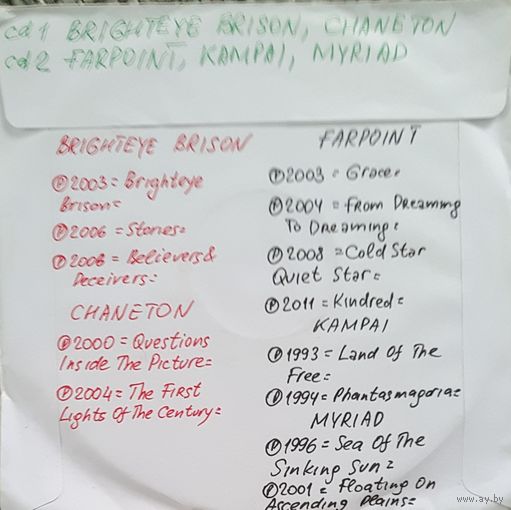 cd1 BRIGHTEYE BRISON, CHANETON
cd2 FARPOINT, KAMPAI, MYRIAD
BRIGHTEYE BRISON
℗2003= Brighteye
Brison=
℗2006 =Stories=
℗2008 = Believers&
Deceivers=
CHANETON
℗2000 = Questions
Inside The Picture=
℗2004= The First
Lights Of The Century=
FARPOINT
℗2003 = Grace=
℗2004 = From Dreaming
To Dreaming=
℗2008 =Cold Star
Quiet Star=
℗2011 = Kindred=
KAMPAI
℗1993 = Land Of The
Free=
℗1994= Phantasmagoria=
MYRIAD
℗1996 = Sea Of The
Sinking Sun=
℗2001 = Floating On
Ascending Plains=
www.ay.by